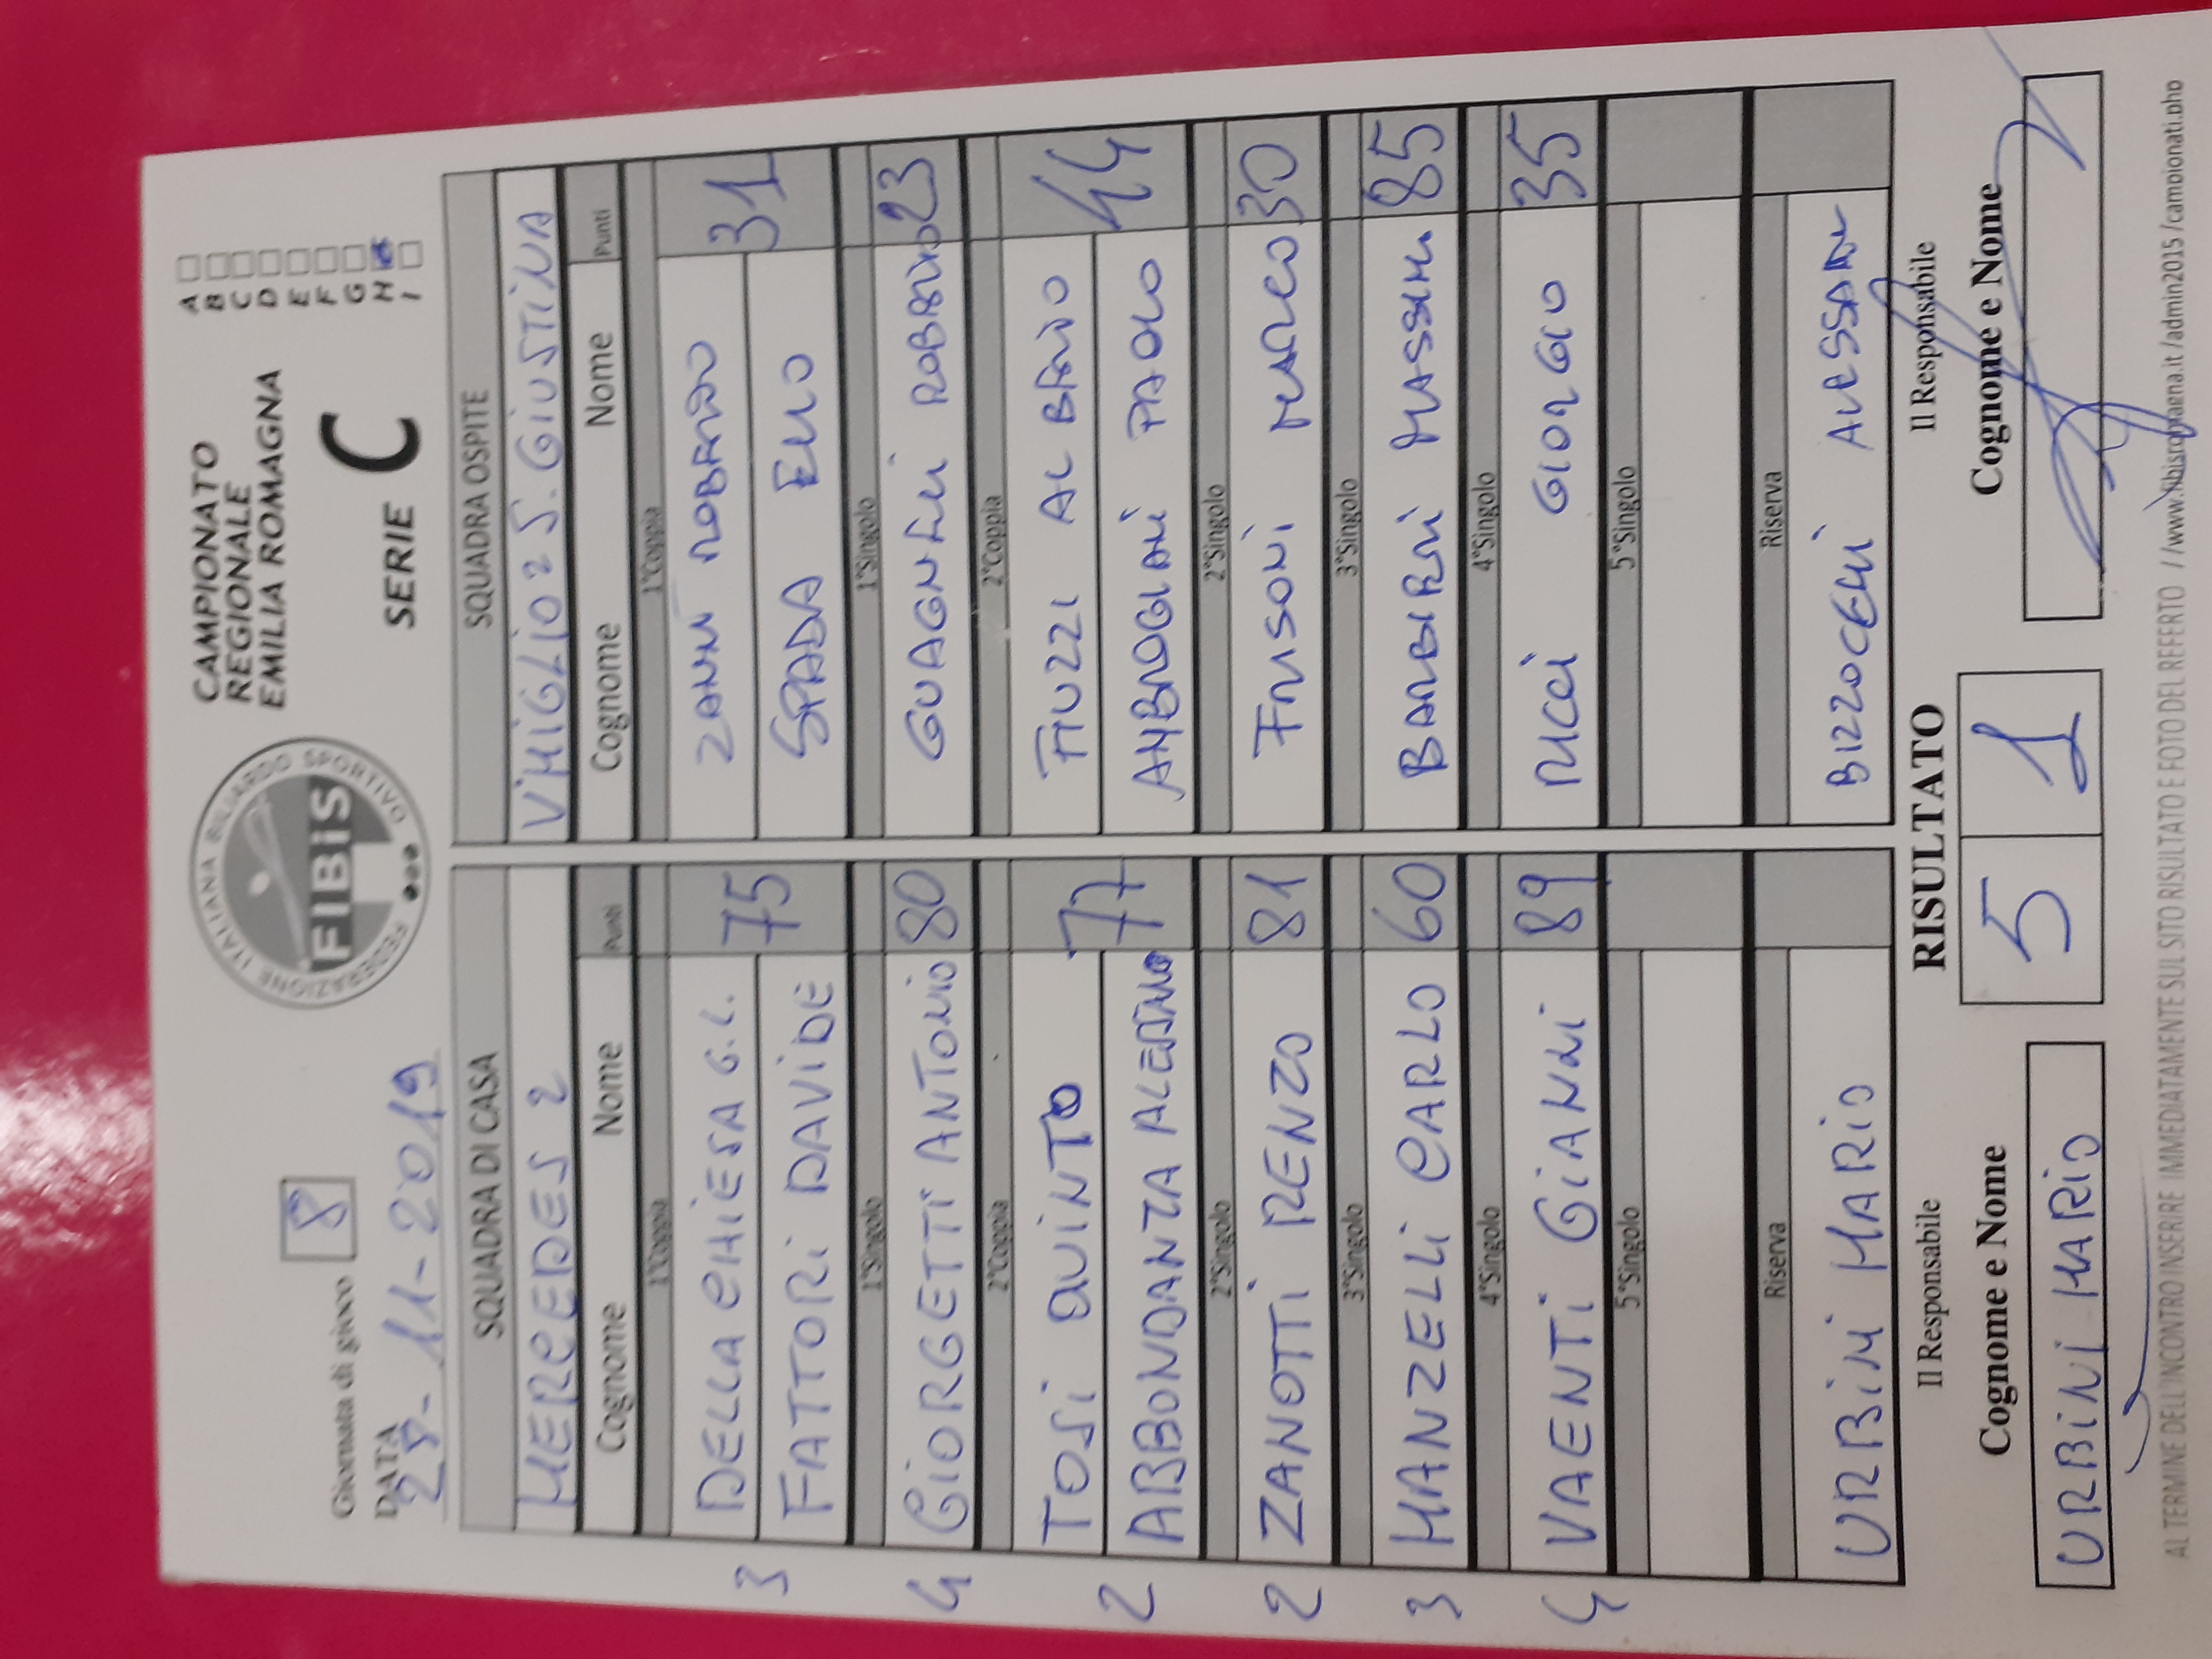 Giornata di gioco 8
DATA
28-11-2019
FEDERAZIONE ITALIANA BILIARDO SPORTIVO
FIBiS
CAMPIONATO
REGIONALE
EMILIA ROMAGNA
SERIE C
A
B
C
D
E
F
G
H
I
SQUADRA DI CASA SQUADRA OSPITE
MERCEDES 2 VIMIGLIO 2 S. GIUSTINA
Cognome Nome Punti Cognome Nome Punti
1°Coppia 1°Coppia
3 DELLA CHIESA G.L. 75 ZANNI ROBERTO 31
FATTORI DAVIDE SPADA ELIO
1°Singolo 1°Singolo
4 GIORGETTI ANTONIO 80 GUAGNELI 23
2°Coppia 2°Coppia
2 TOSI QUINTO 77 FIUZZI ALBINO 44
ABBONDANZA AMBROGIANI PAOLO
2°Singolo 2°Singolo
2 ZANOTTI RENZO 81 FRISONI MARCO 30
3°Singolo 3°Singolo
3 MANZELLI CARLO 60 BARBIERI MASSIMO 85
4°Singolo 4°Singolo
4 VAENTI GIANNI 89 RICCI GIORGIO 35
5°Singolo 5°Singolo
Riserva Riserva
URBINI MARIO BIZZOCCHI
Il Responsabile RISULTATO Il Responsabile
Cognome e Nome 5 1 Cognome e Nome
URBINI MARIO
AL TERMINE DELL'INCONTRO INSERIRE IMMEDIATAMENTE SUL SITO RISULTATO E FOTO DEL REFERTO //www.fibisromagna.it /admin2015 /campionati.php